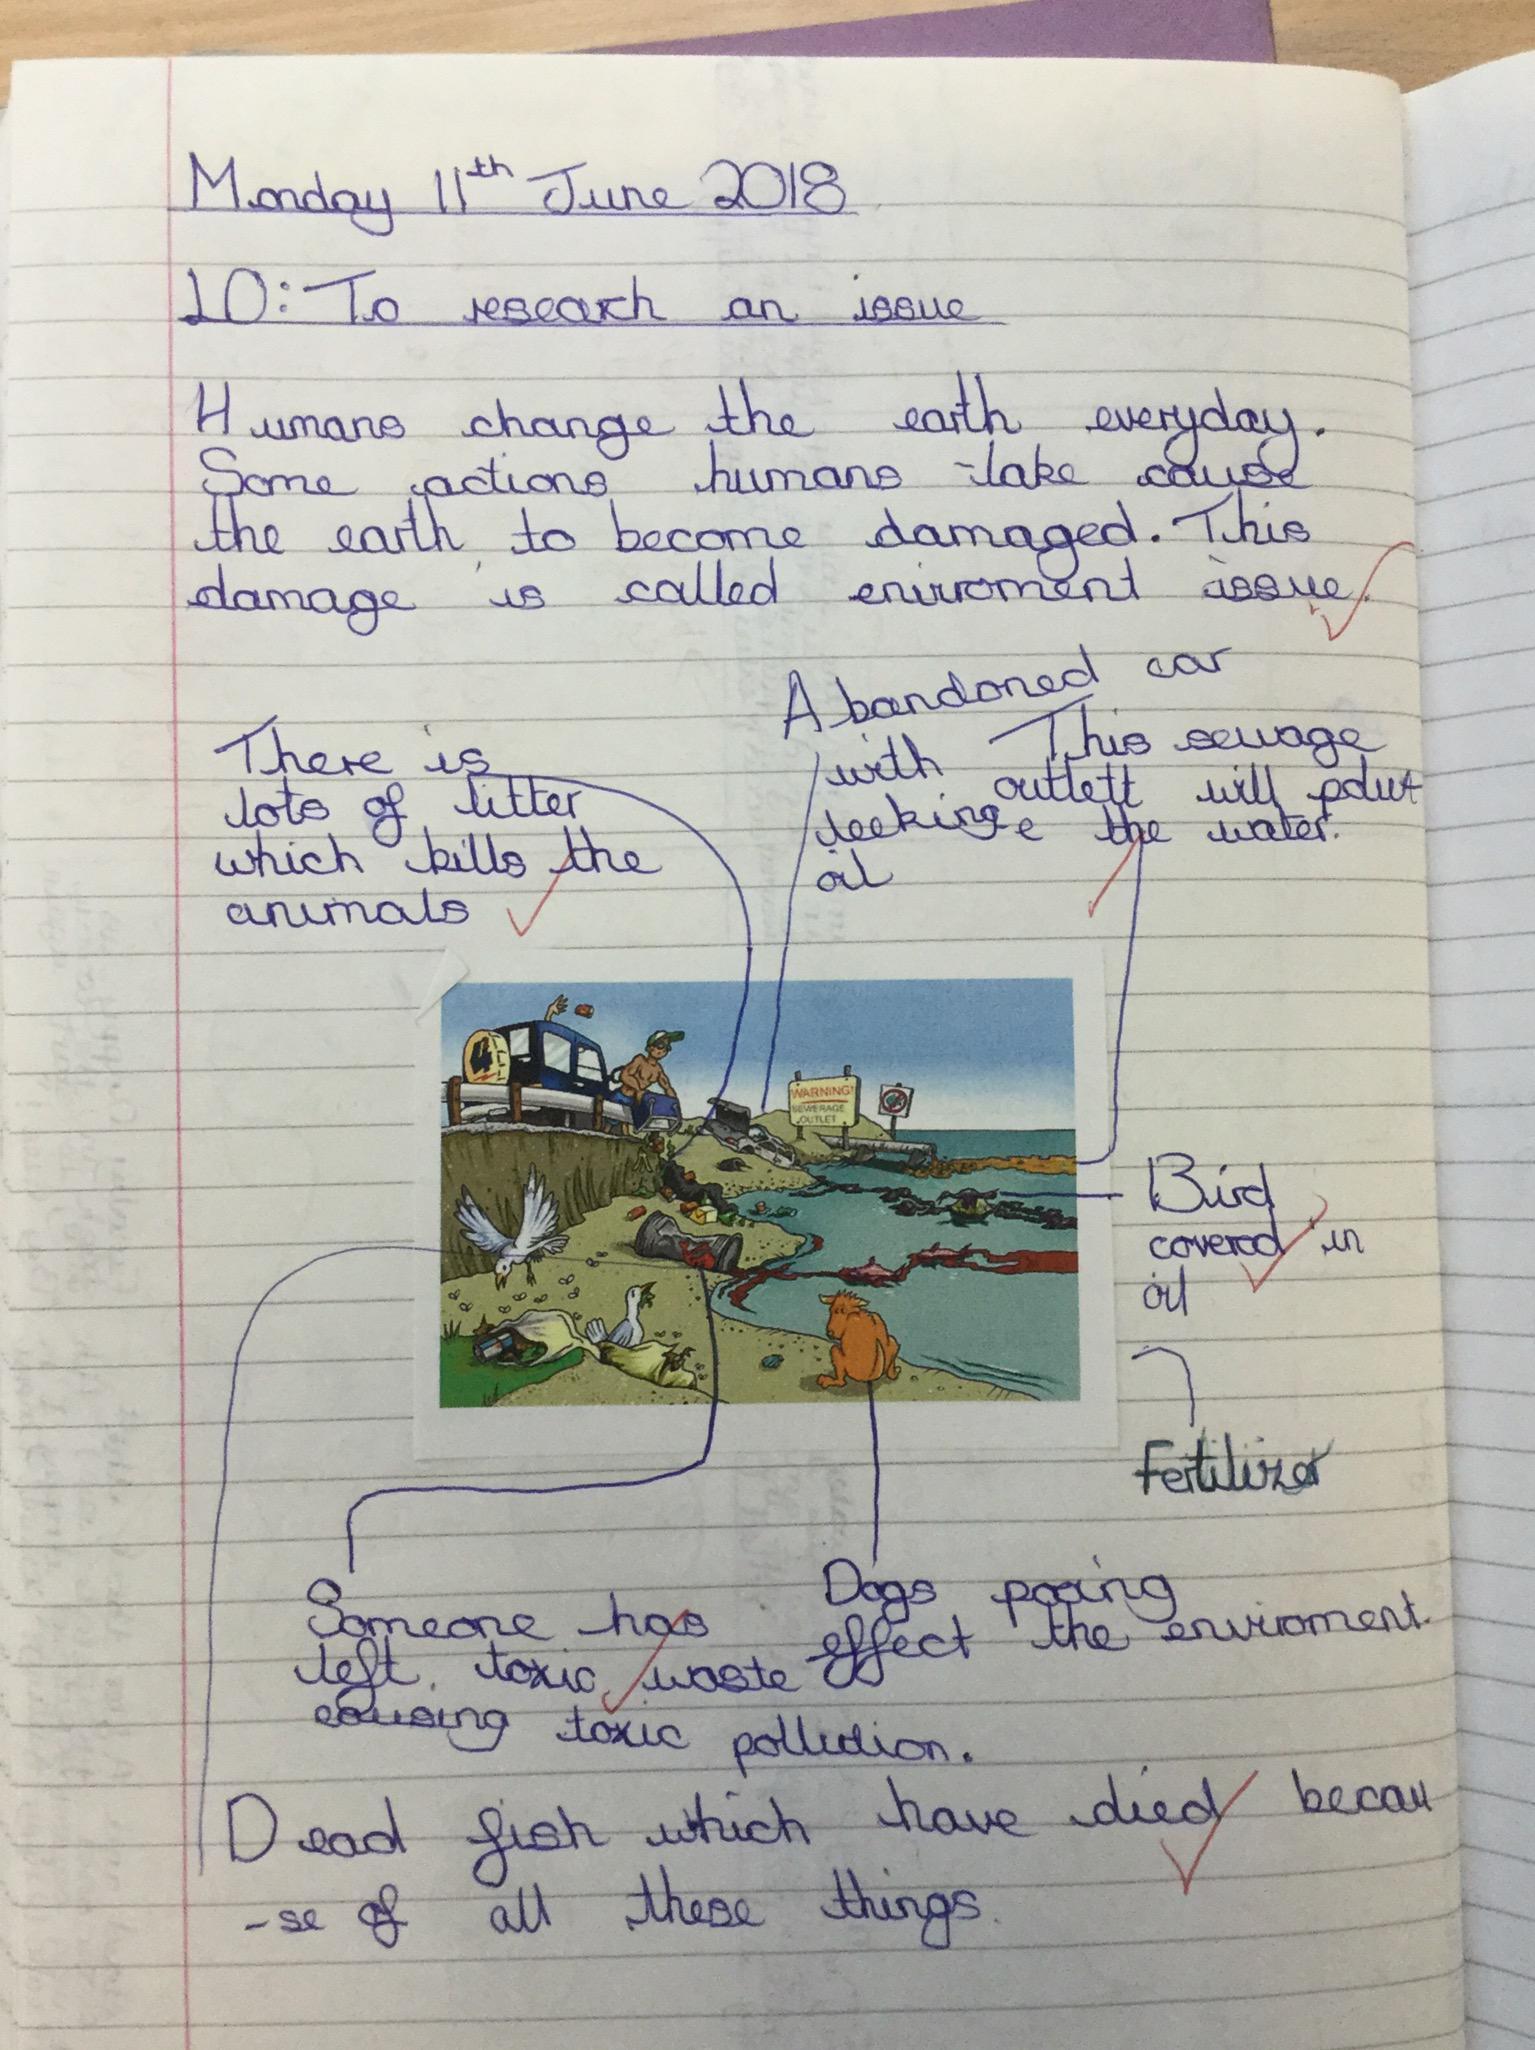 Monday 11th June 2018
LO: To research an issue
Humans change the earth everyday.
Some actions humans take cause
the earth to become damaged. This
damage is called enirroment issue.
There is
lots of litter
which kills the
animals
Abandoned car
with
leeking
oil
This sewage
outlett will polut
e the water.
4
WARNING!
SEWERAGE
OUTLET
Bird
covered in
oil
Fertilizer
Someone has
left toxic waste
causing toxic pollution.
Dogs pooing
effect the enviroment.
Dead fish which have died becau
-se of all these things.